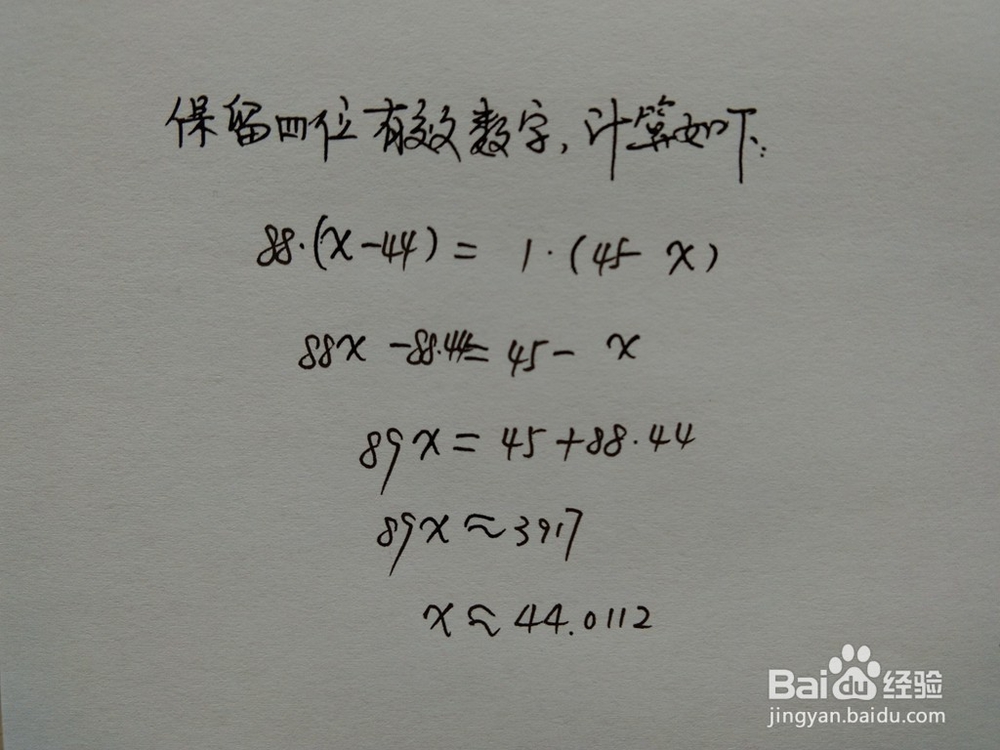 保留四位有效数字,计算如下:
88·(x-44)= 1·(45-x)
88x-88·44=45-x
89x=45+88·44
89x≈3917
x≈44.0112
Baidu经验
jingyan.baidu.com